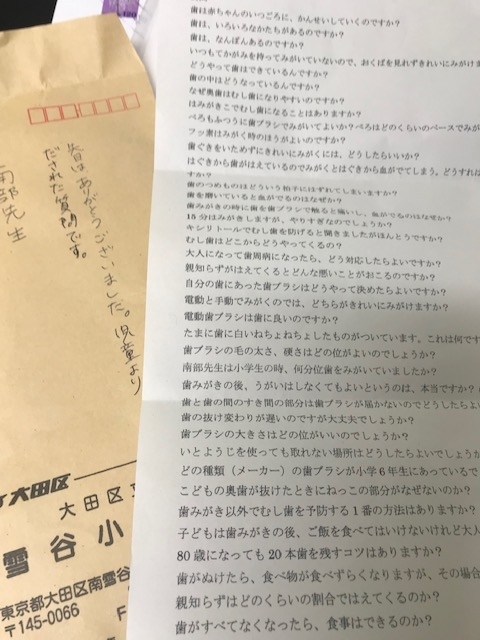 歯は赤ちゃんのいつごろに、かんせいしていくのですか?
歯は、いろいろなかたちがあるのですか?
歯は、なんぼんあるのですか?
いつもてかがみを持ってみがいていないので、おくばを見れずきれいにみがけま
どうやって歯はできているんですか?
歯の中はどうなっているんですか?
なぜ奥歯はむし歯になりやすいのですか?
はみがきこでむし歯になることはありますか?
べろもふつうに歯ブラシでみがいてよいか?べろはどのくらいのペースでみが
フッ素はみがく時のほうがよいのですか?
歯ぐきをいためずにきれいにみがくには、どうしたらいいか?
はぐきから歯がはえているのでみがくとはぐきから血がでてしまう。どうすれば
すか?
歯のつめものはどういう拍子にはずれてしまいますか?
歯を磨いていると血がでるのはなぜか?
歯みがきの時に歯を歯ブラシで触ると痛いし、血がでるのはなぜか?
15分はみがきしますが、やりすぎなのでしょうか?
キシリトールでむし歯を防げると聞きましたがほんとうですか?
むし歯はどこからどうやってくるの?
大人になって歯周病になったら、どう対応したらよいですか?
親知らずがはえてくるとどんな悪いことがおこるのですか?
自分の歯にあった歯ブラシはどうやって決めたらよいですか?
電動と手動でみがくのでは、どちらがきれいにみがけますか?
電動歯ブラシは歯に良いのですか?
たまに歯に白いねちょねちょしたものがついています。これは何です
歯ブラシの毛の太さ、硬さはどの位がよいのでしょうか?
南部先生は小学生の時、何分位歯をみがいていましたか?
歯みがきの後、うがいはしなくてもよいというのは、本当ですか?
歯と歯の間のすき間の部分は歯ブラシが届かないのでどうしたらよ
歯の抜け変わりが遅いのですが大丈夫でしょうか?
歯ブラシの大きさはどの位がいいのでしょうか?
いとようじを使っても取れない場所はどうしたらよいでしょうか
どの種類(メーカー)の歯ブラシが小学6年生にあっているで
こどもの奥歯が抜けたときにねっこの部分がなぜないのか?
歯みがき以外でむし歯を予防する1番の方法はありますか?
子どもは歯みがきの後、ご飯を食べてはいけないけれど大人
80歳になっても20本歯を残すコツはありますか?
歯がぬけたら、食べ物が食べずらくなりますが、その場合
親知らずはどのくらいの割合ではえてくるのか?
歯がすべてなくなったら、食事はできるのか?
南部先生
先日はありがとうございました。児童より
だされた質問です。
大田区
大田区立
雪谷小
東京都大田区南雪谷
〒145-0066